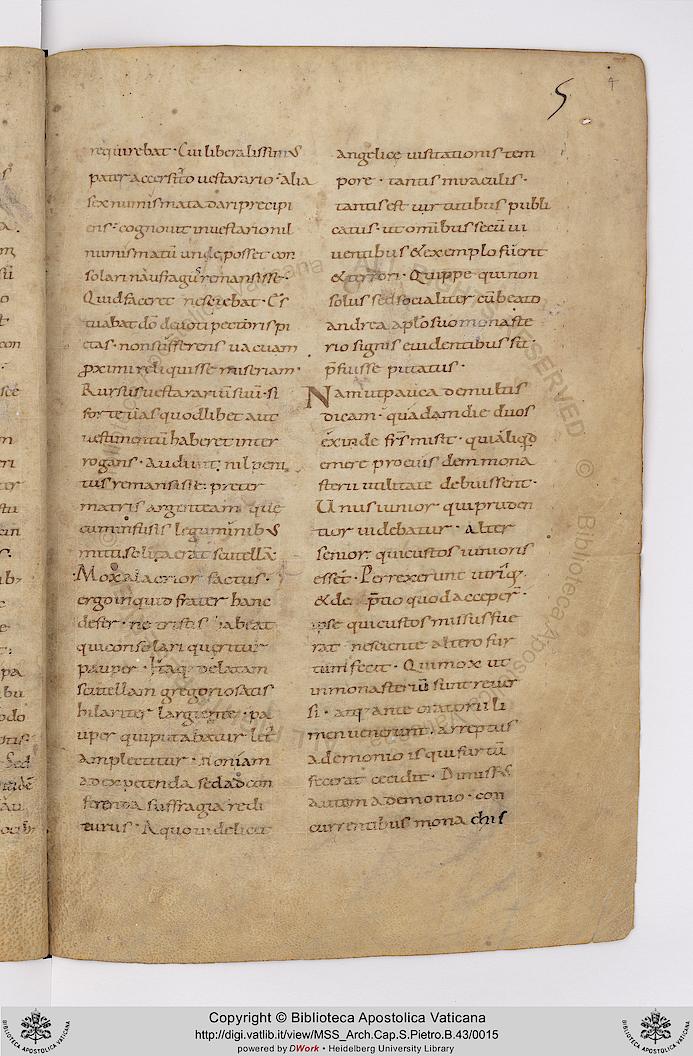 5
4
requirebat · Cui liberalissimus
pater accersito uestarario · alia
sex numismata dari precipi
ens · cognouit in uestario nil
numismatū unde posset con
solari naufragū remansisse ·
Quid faceret nesciebat · Es
tuabat dō deuoti pectoris pi
etas · non sufferens uacuam
proximi reliquisse miseriam ·
Rursus uestarariū suū · si
forte uas quodlibet aut
uestimentū haberet inter
rogans · audiuit nil peni
tus remansisse preter
matris argenteam que
cum infusis leguminibus
mitti solita erat scutellā
Mox alacrior factus ·
ergo inquid frater hanc
defer · ne tristis habeat
qui consolari queritur
pauper · Itaq; delatam
scutellam gregorio satis
hilariter largiente · pa
uper qui putabatur let
amplectitur · non iam
ad expetenda sed ad con
ferenda suffragia redi
turus · A quo uidelicet
angelice uisitationis tem
pore · tantis miraculis ·
tantis est uirtutibus publi
catus · ut omnibus secū ui
uentibus & exemplo fuerit
& terrori · Quippe qui non
solus sed socialiter cū beato
andrea aplo suo monaste
rio signis euidentibus sit
p̄fuisse putatus ·
Nam ut pauca de multis
dicam · quadam die duos
exinde frs misit · qui aliqd
emere pro eiusdem mona
sterii utilitate debuissent ·
Unus iunior · qui pruden
tior uidebatur · alter
senior · qui custos iunioris
esset · Perrexerunt utriq;
& de p̄tio quod acceper
ipse qui custos missus fue
rat nesciente altero fur
tum fecit · Qui mox ut
in monasteriū sunt reuer
si · atq; ante oratorii li
men uenerunt · arreptus
a demonio is qui furtū
fecerat cecidit · Dimissus
autem a demonio · con
currentibus monachis
Copyright © Biblioteca Apostolica Vaticana
http://digi.vatlib.it/view/MSS_Arch.Cap.S.Pietro.B.43/0015
powered by DWork • Heidelberg University Library